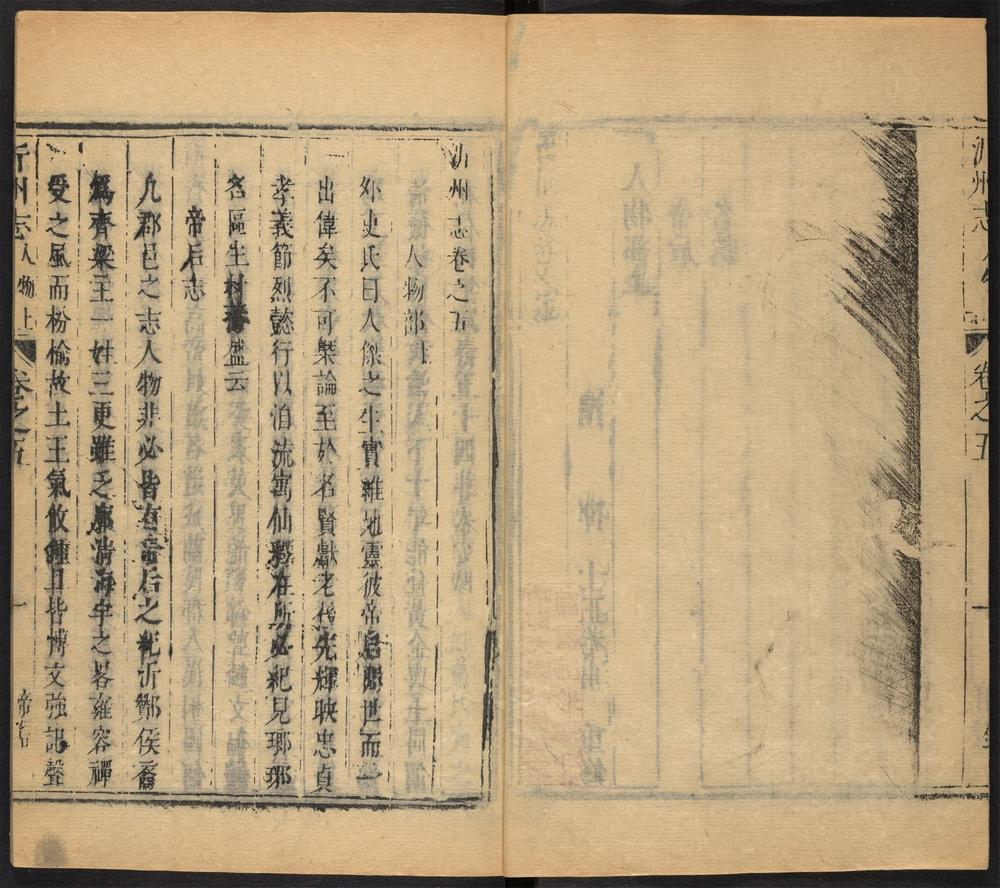 沂州志
卷之五
一
沂州志卷之五
人物部上
外史氏曰人傑之生實維地靈彼帝后隱世而一
出偉矣不可槩論至於名賢獻老後先輝映忠貞
孝義節烈懿行以洎流寓仙釋在所必紀見瑯琊
名區生材蕃盛云
帝后志
凡郡邑之志人物非必皆有帝后之紀沂酇侯裔
爲齊梁王一姓三更雖乏廓清海宇之畧雍容禪
受之風而枌榆故土王氣攸鍾且皆博文強記聲
沂州志人物上 卷之五 一 帝后